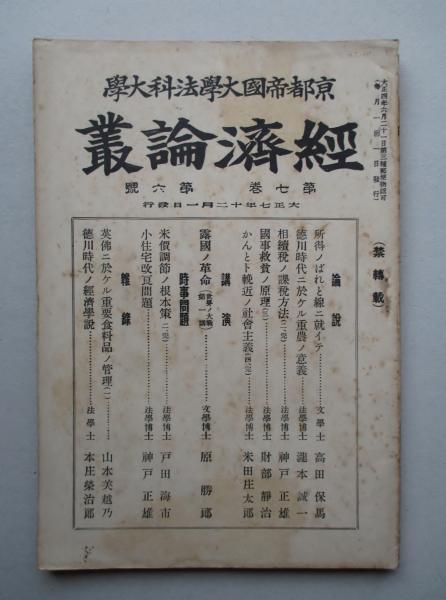 大正四年六月二十一日第三種郵便物認可
(每月一回一日發行)
京都帝國大學法科大學
經濟論叢
第七卷 第六號
大正七年十二月一日發行
(禁轉載)
論說
所得ノぱれと線ニ就イテ………文學士 高田保馬
德川時代ニ於ケル重農ノ意義………法學博士 瀧本誠一
相續稅ノ課稅方法(二・完)………法學博士 神戸正雄
國事救貧ノ原理(二・完)………法學博士 財部靜治
かんとト輓近ノ社會主義(四・完)………法學博士 米田庄太郎
講演
露國ノ革命(世界ノ大戰第一講)………文學博士 原勝郎
時事問題
米價調節ノ根本策(二・完)………法學博士 戸田海市
小住宅改良問題………法學博士 神戸正雄
雜錄
英佛ニ於ケル重要食料品ノ管理(一)………山本美越乃
德川時代ノ經濟學說………法學士 本庄榮治郎